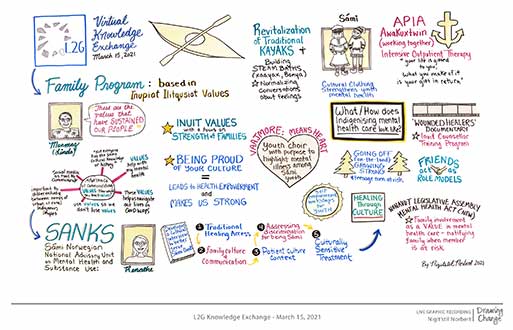 L2G
Virtual
Knowledge
Exchange
March 15, 2021
Revitalization
of Traditional
KAYAKS +
Building
STEAM BATHS
& Normalizing
Conversations
about feelings
Sámi
Cultural Clothing
Strengthens youth
mental health
APIA
(working together)
Intensive Outpatient Therapy
"your life is a gift
to you,
What you make of it
is your gift in return."
Family Program: based in
Inupiat Ilitqusiat Values
These are the
values that
have SUSTAINED
OUR PEOPLE
INUIT VALUES
with a focus on
STRENGTH of FAMILIES
BEING PROUD
OF YOUR
CULTURE
=
LEADS to HEALTH EMPOWERMENT
and
MAKES US STRONG
MEANS HEART
Youth choir
with purpose to
highlight mental
illness among
Sámi
youth
What/How does
Indigenizing mental
health care look like?
'WOUNDED HEALERS'
DOCUMENTARY
Lead Counsellor
Training Program
GOING OFF
(on the land)
GROWING
STRONG
*teenage men at risk
FRIENDS
act as
ROLE MODELS
HEALING
Through
CULTURE
NUNAVUT LEGISLATIVE ASSEMBLY
MENTAL HEALTH ACT (new)
Family involvement
as a VALUE in mental
health care - notifying
family when member
is at risk
SANKS
Sámi Norwegian
National Advisory Unit
on Mental Health and
Substance Use:
Renathe
1 Traditional
Healing Access
2 Family culture &
Communication
3 Patient culture
Context
4 Addressing
discrimination
for being Sámi
5 Culturally
Sensitive
Treatment
2021
L2G Knowledge Exchange - March 15, 2021
LIVE GRAPHIC RECORDING
Drawing
Change